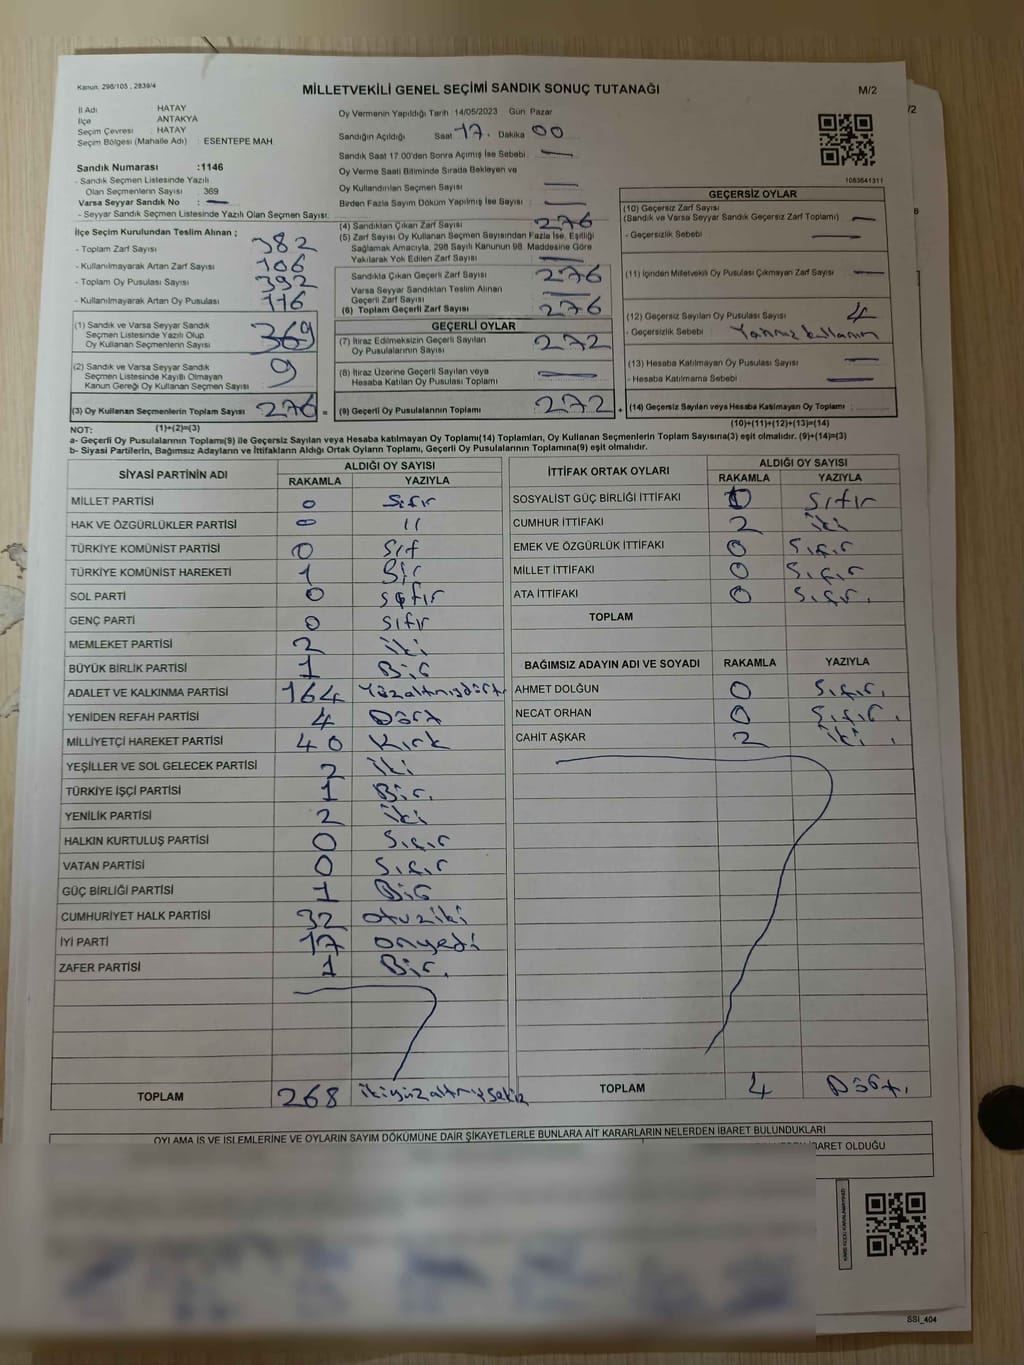 Kanun: 298/105 , 2839/4
MİLLETVEKİLİ GENEL SEÇİMİ SANDIK SONUÇ TUTANAĞI
M/2
/2
İl Adı HATAY
İlçe ANTAKYA
Seçim Çevresi : HATAY
Seçim Bölgesi (Mahalle Adı) : ESENTEPE MAH
Sandık Numarası :1146
- Sandık Seçmen Listesinde Yazılı
Olan Seçmenlerin Sayısı : 369
Varsa Seyyar Sandık No : —
- Seyyar Sandık Seçmen Listesinde Yazılı Olan Seçmen Sayısı:
Oy Vermenin Yapıldığı Tarih :14/05/2023 Gün Pazar
Sandığın Açıldığı Saat 17. Dakika 00
Sandık Saat 17.00'den Sonra Açımış İse Sebebi : —
Oy Verme Saati Bitiminde Sırada Bekleyen ve
Oy Kullandırılan Seçmen Sayısı : —
Birden Fazla Sayım Döküm Yapılmış İse Sayısı : —
1083641311
İlçe Seçim Kurulundan Teslim Alınan ;
- Toplam Zarf Sayısı : 382
- Kullanılmayarak Artan Zarf Sayısı : 106
- Toplam Oy Pusulası Sayısı : 392
- Kullanılmayarak Artan Oy Pusulası : 116
(1) Sandık ve Varsa Seyyar Sandık
Seçmen Listesinde Yazılı Olup
Oy Kullanan Seçmenlerin Sayısı : 369
(2) Sandık ve Varsa Seyyar Sandık
Seçmen Listesinde Kayıtlı Olmayan
Kanun Gereği Oy Kullanan Seçmen Sayısı : 9
(3) Oy Kullanan Seçmenlerin Toplam Sayısı : 276 =
(4) Sandıktan Çıkan Zarf Sayısı : 276
(5) Zarf Sayısı Oy Kullanan Seçmen Sayısından Fazla İse, Eşitliği
Sağlamak Amacıyla, 298 Sayılı Kanunun 98. Maddesine Göre
Yakılarak Yok Edilen Zarf Sayısı : —
Sandıkta Çıkan Geçerli Zarf Sayısı : 276
Varsa Seyyar Sandıktan Teslim Alınan
Geçerli Zarf Sayısı : —
(6) Toplam Geçerli Zarf Sayısı : 276
GEÇERLİ OYLAR
(7) İtiraz Edilmeksizin Geçerli Sayılan
Oy Pusulalarının Sayısı : 272
(8) İtiraz Üzerine Geçerli Sayılan veya
Hesaba Katılan Oy Pusulası Toplamı : —
(9) Geçerli Oy Pusulalarının Toplamı : 272 +
GEÇERSİZ OYLAR
(10) Geçersiz Zarf Sayısı
(Sandık ve Varsa Seyyar Sandık Geçersiz Zarf Toplamı) : —
- Geçersizlik Sebebi : —
(11) İçinden Milletvekili Oy Pusulası Çıkmayan Zarf Sayısı : —
(12) Geçersiz Sayılan Oy Pusulası Sayısı : 4
- Geçersizlik Sebebi :
(13) Hesaba Katılmayan Oy Pusulası Sayısı : —
- Hesaba Katılmama Sebebi : —
(14) Geçersiz Sayılan veya Hesaba Katılmayan Oy Toplamı :
NOT: (1)+(2)=(3)
(10)+(11)+(12)+(13)=(14)
a- Geçerli Oy Pusulalarının Toplamı(9) ile Geçersiz Sayılan veya Hesaba katılmayan Oy Toplamı(14) Toplamları, Oy Kullanan Seçmenlerin Toplam Sayısına(3) eşit olmalıdır. (9)+(14)=(3)
b- Siyasi Partilerin, Bağımsız Adayların ve İttifakların Aldığı Ortak Oyların Toplamı, Geçerli Oy Pusulalarının Toplamına(9) eşit olmalıdır.
SİYASİ PARTİNİN ADI ALDIĞI OY SAYISI
RAKAMLA YAZIYLA
MİLLET PARTİSİ 0 Sıfır
HAK VE ÖZGÜRLÜKLER PARTİSİ 0 "
TÜRKİYE KOMÜNİST PARTİSİ 0 Sıf
TÜRKİYE KOMÜNİST HAREKETİ 1 Bir
SOL PARTİ 0 sıfır
GENÇ PARTİ 0 sıfır
MEMLEKET PARTİSİ 2 iki
BÜYÜK BİRLİK PARTİSİ 1 Bir
ADALET VE KALKINMA PARTİSİ 164 Yüzaltmışdört
YENİDEN REFAH PARTİSİ 4 Dört
MİLLİYETÇİ HAREKET PARTİSİ 40 Kırk
YEŞİLLER VE SOL GELECEK PARTİSİ 2 iki
TÜRKİYE İŞÇİ PARTİSİ 1 Bir.
YENİLİK PARTİSİ 2 iki
HALKIN KURTULUŞ PARTİSİ 0 Sıfır
VATAN PARTİSİ 0 Sıfır
GÜÇ BİRLİĞİ PARTİSİ 1 Bir
CUMHURİYET HALK PARTİSİ 32 otuziki
İYİ PARTİ 17 onyedi
ZAFER PARTİSİ 1 Bir.
TOPLAM 268 ikiyüzaltmışsekiz
İTTİFAK ORTAK OYLARI ALDIĞI OY SAYISI
RAKAMLA YAZIYLA
SOSYALİST GÜÇ BİRLİĞİ İTTİFAKI 0 Sıfır
CUMHUR İTTİFAKI 2 iki
EMEK VE ÖZGÜRLÜK İTTİFAKI 0 Sıfır
MİLLET İTTİFAKI 0 Sıfır
ATA İTTİFAKI 0 Sıfır.
TOPLAM
BAĞIMSIZ ADAYIN ADI VE SOYADI RAKAMLA YAZIYLA
AHMET DOLĞUN 0 Sıfır.
NECAT ORHAN 0 Sıfır.
CAHİT AŞKAR 2 iki.
TOPLAM 4 Dört.
OYLAMA İŞ VE İŞLEMLERİNE VE OYLARIN SAYIM DÖKÜMÜNE DAİR ŞİKAYETLERLE BUNLARA AİT KARARLARIN NELERDEN İBARET BULUNDUKLARI
İBARET OLDUĞU
SSI_404